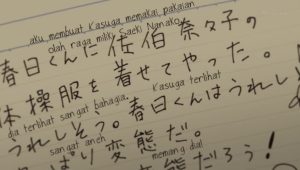 aku membuat Kasuga memakai pakaian
olah raga milik Saeki Nanako
春日くんに佐伯奈々子の
体操服を着せてやった。
dia terlihat sangat bahagia. Kasuga terlihat
うれしそう。春日くんはうれしい
sangat aneh memang dia!
っぱり変態だ。
態だろう!